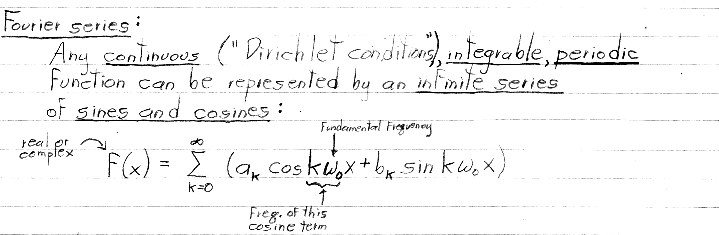 Fourier series:
Any continuous ("Dirichlet conditions"), integrable, periodic
function can be represented by an infinite series
of sines and cosines:
Fundamental Frequency
real or
complex
F(x) = ∑_{k=0}^{∞} (a_k cos kω₀x + b_k sin kω₀x)
Freq. of this
cosine term